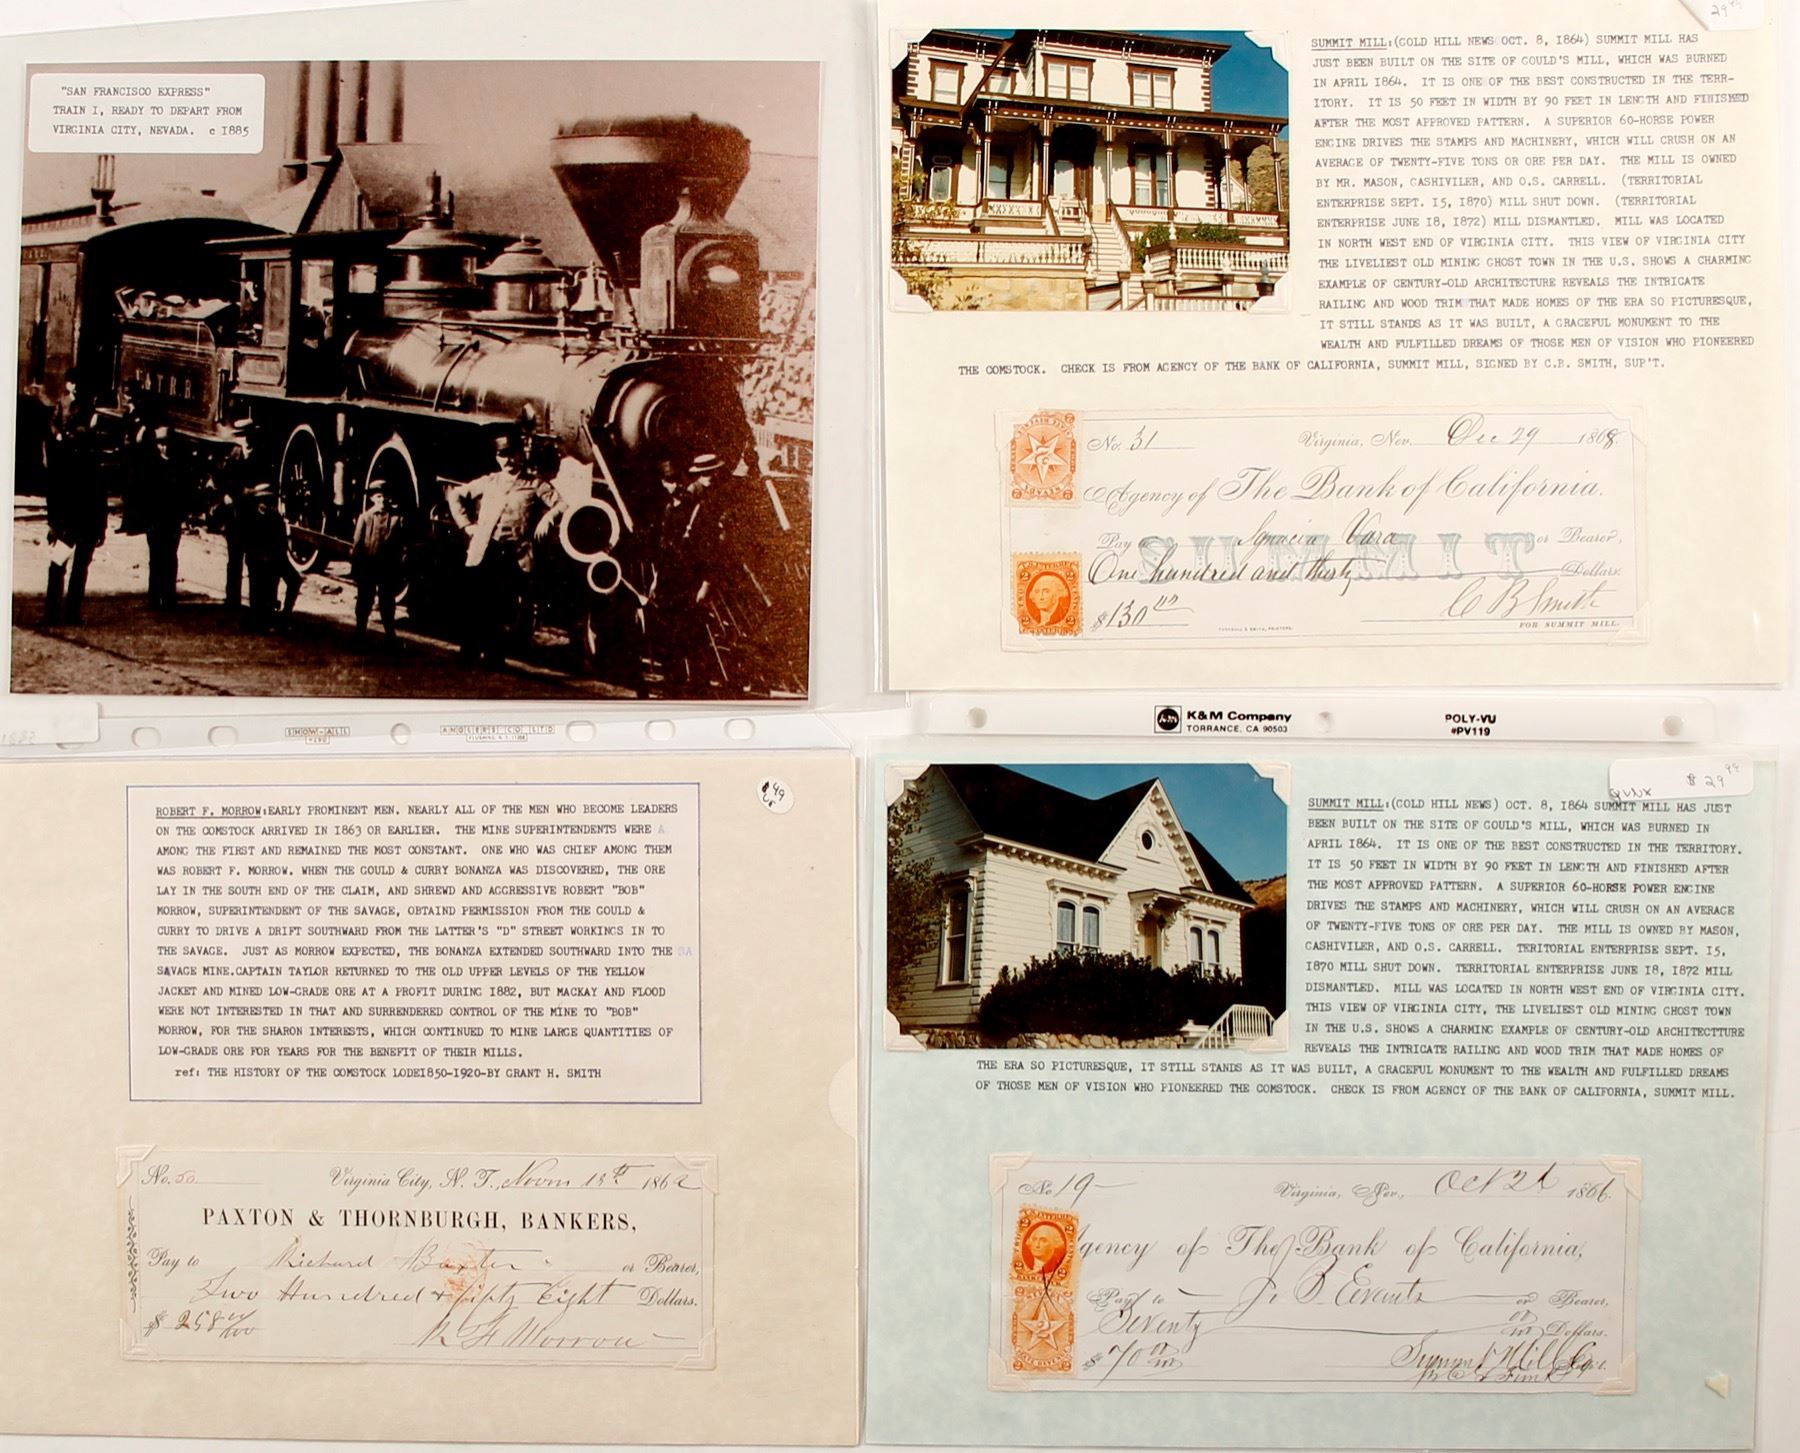 "SAN FRANCISCO EXPRESS"
TRAIN I, READY TO DEPART FROM
VIRGINIA CITY, NEVADA. c I885
V.&T.R.R.
29 95
SUMMIT MILL:(GOLD HILL NEWS OCT. 8, I864) SUMMIT MILL HAS
JUST BEEN BUILT ON THE SITE OF GOULD'S MILL, WHICH WAS BURNED
IN APRIL I864. IT IS ONE OF THE BEST CONSTRUCTED IN THE TERR-
ITORY. IT IS 50 FEET IN WIDTH BY 90 FEET IN LENGTH AND FINISHED
AFTER THE MOST APPROVED PATTERN. A SUPERIOR 60-HORSE POWER
ENGINE DRIVES THE STAMPS AND MACHINERY, WHICH WILL CRUSH ON AN
AVERAGE OF TWENTY-FIVE TONS OR ORE PER DAY. THE MILL IS OWNED
BY MR. MASON, CASHIVILER, AND O.S. CARRELL. (TERRITORIAL
ENTERPRISE SEPT. I5, I870) MILL SHUT DOWN. (TERRITORIAL
ENTERPRISE JUNE I8, I872) MILL DISMANTLED. MILL WAS LOCATED
IN NORTH WEST END OF VIRGINIA CITY. THIS VIEW OF VIRGINIA CITY
THE LIVELIEST OLD MINING GHOST TOWN IN THE U.S. SHOWS A CHARMING
EXAMPLE OF CENTURY-OLD ARCHITECTURE REVEALS THE INTRICATE
RAILING AND WOOD TRIM THAT MADE HOMES OF THE ERA SO PICTURESQUE,
IT STILL STANDS AS IT WAS BUILT, A GRACEFUL MONUMENT TO THE
WEALTH AND FULFILLED DREAMS OF THOSE MEN OF VISION WHO PIONEERED
THE COMSTOCK. CHECK IS FROM AGENCY OF THE BANK OF CALIFORNIA, SUMMIT MILL, SIGNED BY C.B. SMITH, SUP'T.
No. 31 Virginia, Nev. Dec 29 1868
Agency of The Bank of California.
Pay to Ignacia Vara or Bearer,
SUMMIT
One hundred and thirty Dollars.
$130
C B Smith
FOR SUMMIT MILL.
TURNBULL & SMITH, PRINTERS.
SHOW-ALL
ANGLERS CO. LTD
FLUSHING N.Y. 11358
K&M Company
TORRANCE, CA 90503
POLY-VU
#PV119
$49
ROBERT F. MORROW:EARLY PROMINENT MEN. NEARLY ALL OF THE MEN WHO BECOME LEADERS
ON THE COMSTOCK ARRIVED IN I863 OR EARLIER. THE MINE SUPERINTENDENTS WERE A
AMONG THE FIRST AND REMAINED THE MOST CONSTANT. ONE WHO WAS CHIEF AMONG THEM
WAS ROBERT F. MORROW. WHEN THE GOULD & CURRY BONANZA WAS DISCOVERED, THE ORE
LAY IN THE SOUTH END OF THE CLAIM, AND SHREWD AND AGGRESSIVE ROBERT "BOB"
MORROW, SUPERINTENDENT OF THE SAVAGE, OBTAIND PERMISSION FROM THE GOULD &
CURRY TO DRIVE A DRIFT SOUTHWARD FROM THE LATTER'S "D" STREET WORKINGS IN TO
THE SAVAGE. JUST AS MORROW EXPECTED, THE BONANZA EXTENDED SOUTHWARD INTO THE SA
SAVAGE MINE.CAPTAIN TAYLOR RETURNED TO THE OLD UPPER LEVELS OF THE YELLOW
JACKET AND MINED LOW-GRADE ORE AT A PROFIT DURING I882, BUT MACKAY AND FLOOD
WERE NOT INTERESTED IN THAT AND SURRENDERED CONTROL OF THE MINE TO "BOB"
MORROW, FOR THE SHARON INTERESTS, WHICH CONTINUED TO MINE LARGE QUANTITIES OF
LOW-GRADE ORE FOR YEARS FOR THE BENEFIT OF THEIR MILLS.
ref: THE HISTORY OF THE COMSTOCK LODEI850-I920-BY GRANT H. SMITH
No. 50 Virginia City, N. T., Novm 15th 1862
PAXTON & THORNBURGH, BANKERS,
Pay to Richard Baxter or Bearer,
Two Hundred & Fifty Eight Dollars.
$ 258 00/100
R F Morrow
$ 29 95
SUMMIT MILL:(GOLD HILL NEWS) OCT. 8, I864 SUMMIT MILL HAS JUST
BEEN BUILT ON THE SITE OF GOULD'S MILL, WHICH WAS BURNED IN
APRIL I864. IT IS ONE OF THE BEST CONSTRUCTED IN THE TERRITORY.
IT IS 50 FEET IN WIDTH BY 90 FEET IN LENGTH AND FINISHED AFTER
THE MOST APPROVED PATTERN. A SUPERIOR 60-HORSE POWER ENGINE
DRIVES THE STAMPS AND MACHINERY, WHICH WILL CRUSH ON AN AVERAGE
OF TWENTY-FIVE TONS OF ORE PER DAY. THE MILL IS OWNED BY MASON,
CASHIVILER, AND O.S. CARRELL. TERITORIAL ENTERPRISE SEPT. I5,
I870 MILL SHUT DOWN. TERRITORIAL ENTERPRISE JUNE I8, I872 MILL
DISMANTLED. MILL WAS LOCATED IN NORTH WEST END OF VIRGINIA CITY.
THIS VIEW OF VIRGINIA CITY, THE LIVELIEST OLD MINING GHOST TOWN
IN THE U.S. SHOWS A CHARMING EXAMPLE OF CENTURY-OLD ARCHITECTTURE
REVEALS THE INTRICATE RAILING AND WOOD TRIM THAT MADE HOMES OF
THE ERA SO PICTURESQUE, IT STILL STANDS AS IT WAS BUILT, A GRACEFUL MONUMENT TO THE WEALTH AND FULFILLED DREAMS
OF THOSE MEN OF VISION WHO PIONEERED THE COMSTOCK. CHECK IS FROM AGENCY OF THE BANK OF CALIFORNIA, SUMMIT MILL.
No 19 Virginia, Nev., Oct 1866.
Agency of The Bank of California,
Pay to J. B. Evants or Bearer,
Seventy Dollars.
$70
Summit Mill Co